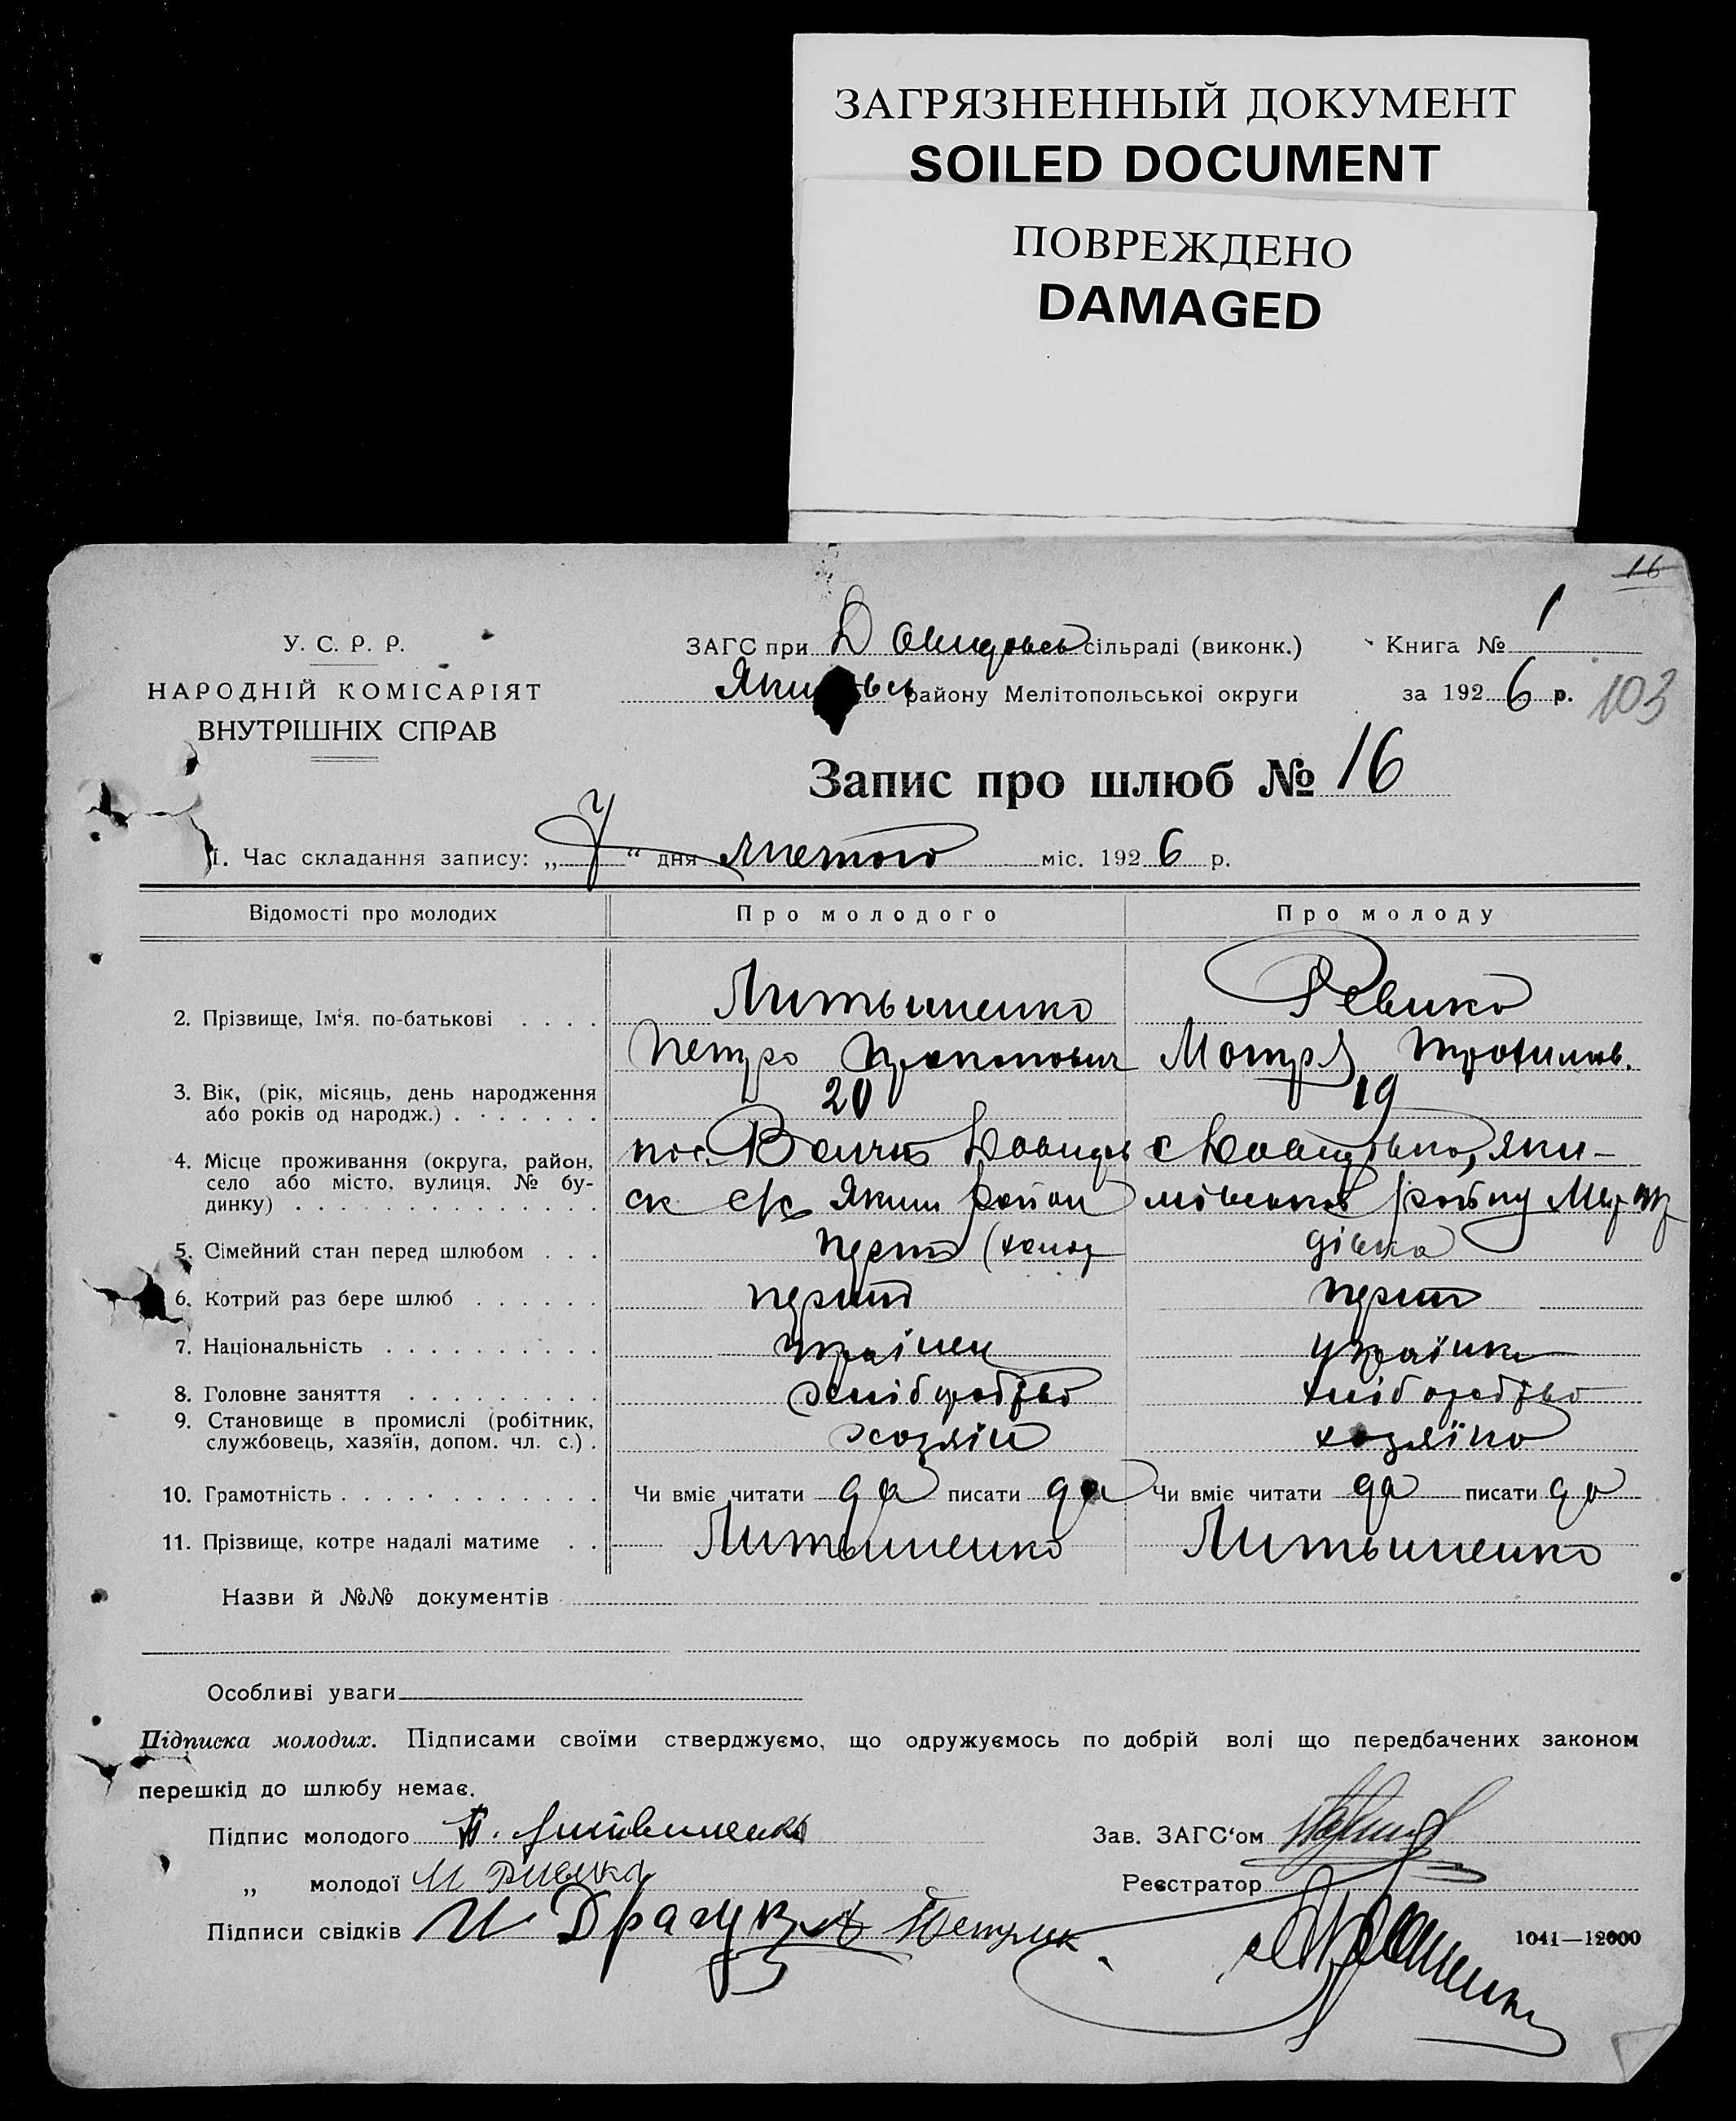 ЗАГРЯЗНЕННЫЙ ДОКУМЕНТ
SOILED DOCUMENT
ПОВРЕЖДЕНО
DAMAGED
16
У. С. Р. Р.
НАРОДНІЙ КОМІСАРІЯТ
ВНУТРІШНІХ СПРАВ
ЗАГС при Давидовсь сільраді (виконк.)
Книга № 1
району Мелітопольської округи
за 192 6 р. 103
Запис про шлюб № 16
1. Час складання запису: „ 7 “ дня лютого міс. 192 6 р.
Відомості про молодих Про молодого Про молоду
2. Прізвище, Ім‘я. по-батькові . . . . Литвиненко Ревика
Петро Прокопович Мотря Трохимів.
3. Вік, (рік, місяць, день народження або років од народж.) . . . . . . . 20 19
4. Місце проживання (округа, район, село або місто, вулиця, № будинку) . . . . . . . . . . . . . .
5. Сімейний стан перед шлюбом . . . дівка
6. Котрий раз бере шлюб . . . . . . перший перший
7. Національність . . . . . . . . . . українец українка
8. Головне заняття . . . . . . . . . хліборобство хліборобство
9. Становище в промислі (робітник, службовець, хазяїн, допом. чл. с.) . хозяїн хозяїка
10. Грамотність . . . . . . . . . . . . Чи вміє читати да писати да Чи вміє читати да писати да
11. Прізвище, котре надалі матиме . . Литвиненко Литвиненко
Назви й №№ документів
Особливі уваги
Підписка молодих. Підписами своїми стверджуємо, що одружуємось по добрій волі що передбачених законом
перешкід до шлюбу немає.
Підпис молодого П. Литвиненко
Зав. ЗАГС‘ом
„ молодої М Ривика
Реєстратор
Підписи свідків И
1041—12000